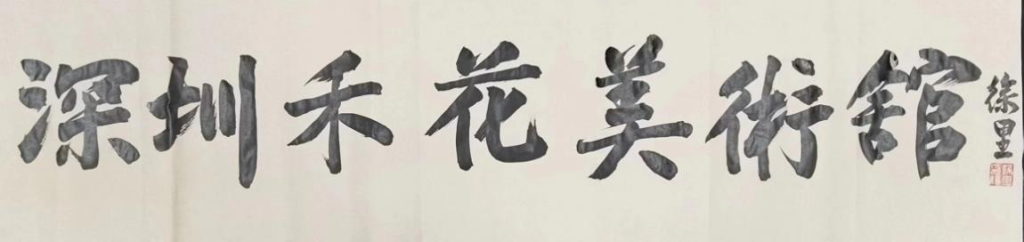 深圳禾花美術舘
徐里